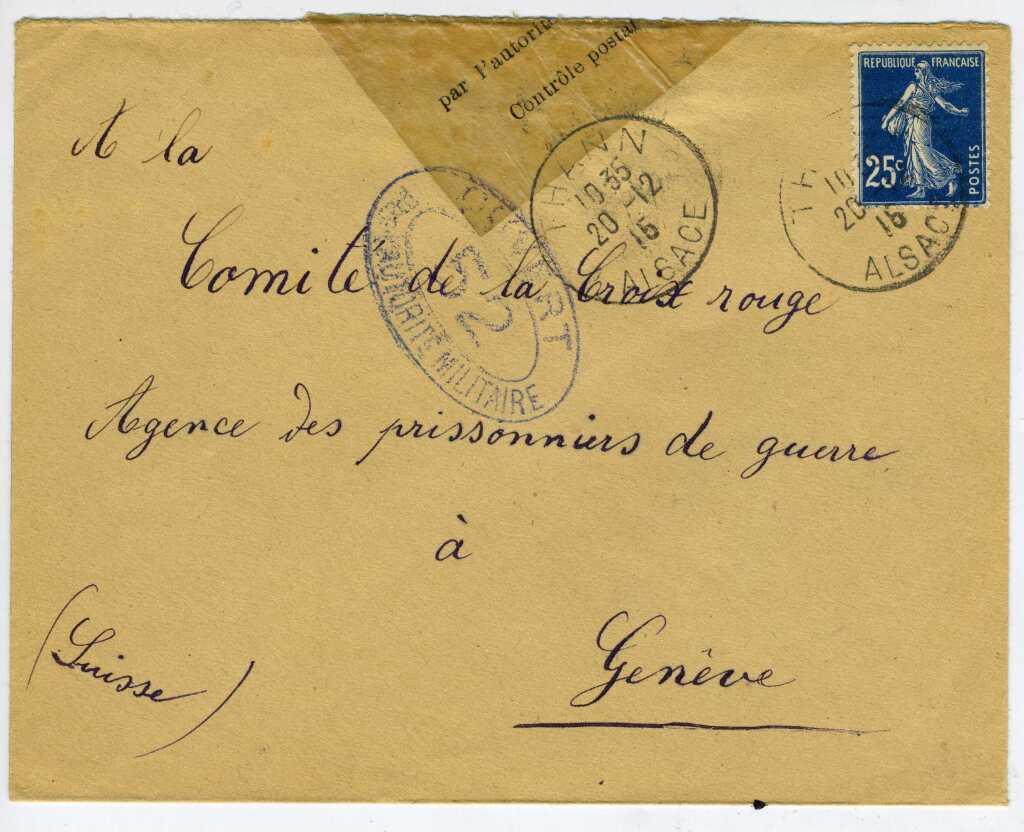 par l'autorité
Contrôle postal
RÉPUBLIQUE FRANÇAISE
25c
POSTES
THANN
10 35
20 - 12
15
ALSACE
TH
10
20
15
ALSACE
OUVERT
52
PAR
AUTORITÉ MILITAIRE
A la
Comite de la Croix rouge
Agence des prissonniers de guerre
à
Genève
(Suisse)